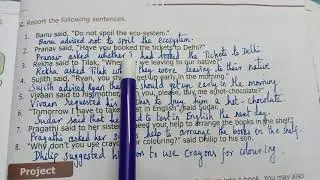 c. Report the following sentences.
1. Banu said, "Do not spoil the eco-system."
Banu advised not to spoil the ecosystem.
2. Pranav said, "Have you booked the tickets to Delhi?"
Pranav asked whether I had booked the Tickets to Delhi
3. Rekha said to Tilak, "When we leaving to our native?"
Rekha asked Tilak when they were leaving to their native
4. Sujith said, "Ryan, you getup early in the morning."
Sujith advised Ryan that should getup early in the morning.
5. Vivaan said to his mother, you, please, buy me a hot-chocolate?"
Vivaan requested his mother to buy him a hot-chocolate.
6. "Tomorrow I have to take test in English" said Sudar.
Sudar said that he had to test in English the next day.
7. Pragathi said to her sister, need your help to arrange the books in the shelf.
Pragathi asked her help to arrange the books on the shelf.
8. "Why don't you use crayons for colouring?" said Dhilip to his son.
Dhilip suggested his son to use crayons for colouring
Project